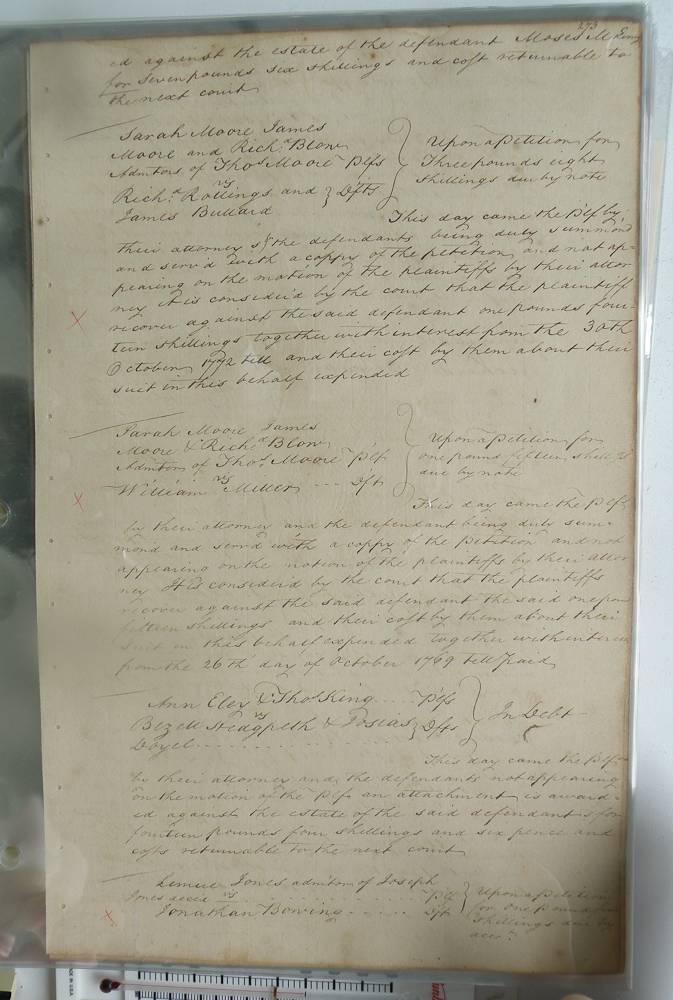 273
ed against the estate of the defendant Moses
for Seven pounds six shillings and cost returnable to
the next court
Sarah Moore James
Moore and Richd. Blow
Admtors of Thos Moore Plfs
vs
Richd. Rollings and } Dfts
James Bullard
Upon a Petition for
Three pounds eight
shillings due by note
This day came the Plf by
their attorney & the defendants being duly summond
and serv'd with a coppy of the petition and not ap=
pearing on the motion of the plaintiffs by their attor
ney it is consider'd by the court that the plaintiff
recover against the said defendant one pounds four=
teen shillings together with interest from the 30th
October 1772 till and their cost by them about their
suit in this behalf expended
Sarah Moore James
Moore & Richd. Blow
Admtors of Thos. Moore Plf
vs
William Miller --- Dft
Upon a Petition for
one pound fifteen shill
due by note
This day came the Plfs
by their attorney and the defendant being duly sum=
mond and servd with a coppy of the Petition and not
appearing on the motion of the plaintiffs by their attor
ney It is consider'd by the court that the plaintiffs
recover against the said defendant the said one
fifteen shillings and their cost by them about their
suit in this behalf expended together with
from the 26th day of October 1769 till paid
Ann Eley & Thos King .... Plfs
vs
Bezell Hedgpeth & Josias } Dfts
Doyel
In Debt
This day came the Plf
by their attorney and the defendants not appearing
on the motion of the Plfs an attachment is award=
ed against the estate of the said defendants for
fourteen pounds four shillings and six pence and
costs returnable to the next court
Lemuel Jones admtor of Joseph
Jones decd ...... Plf
vs
Jonathan Bowing ...... Dft
Upon a Petition
for one pound
shillings due by
acct.